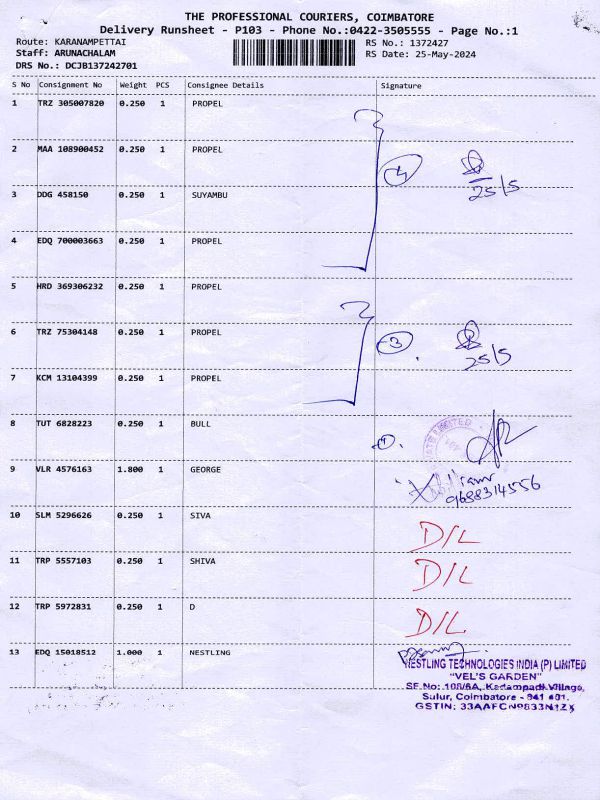 THE PROFESSIONAL COURIERS, COIMBATORE
Delivery Runsheet - P103 - Phone No.:0422-3505555 - Page No.:1
Route: KARANAMPETTAI RS No.: 1372427
Staff: ARUNACHALAM RS Date: 25-May-2024
DRS No.: DCJB137242701
S No Consignment No Weight PCS Consignee Details Signature
1 TRZ 305007820 0.250 1 PROPEL
2 MAA 108900452 0.250 1 PROPEL
4 25/5
3 DDG 458150 0.250 1 SUYAMBU
4 EDQ 700003663 0.250 1 PROPEL
5 HRD 369306232 0.250 1 PROPEL
6 TRZ 75304148 0.250 1 PROPEL
3 25/5
7 KCM 13104399 0.250 1 PROPEL
8 TUT 6828223 0.250 1 BULL
9 VLR 4576163 1.800 1 GEORGE
9688314556
10 SLM 5296626 0.250 1 SIVA D/L
11 TRP 5557103 0.250 1 SHIVA D/L
12 TRP 5972831 0.250 1 D D/L
13 EDQ 15018512 1.000 1 NESTLING
NESTLING TECHNOLOGIES INDIA (P) LIMITED
"VEL'S GARDEN"
SF.No: 108/6A, Kadampadi Village,
Sulur, Coimbatore - 641 401.
GSTIN: 33AAFCN9833N1ZX